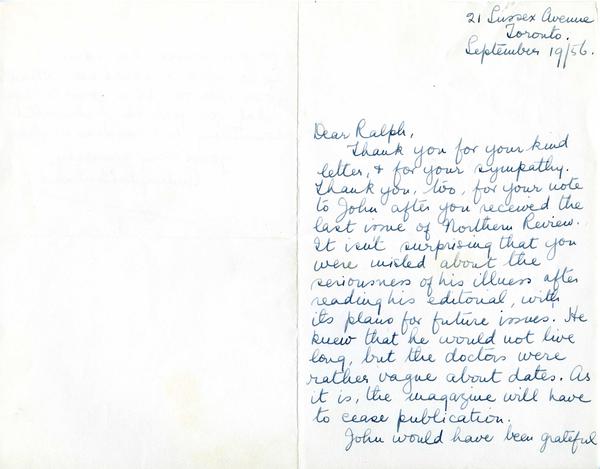 21 Sussex Avenue
Toronto.
September 19/56.
Dear Ralph,
Thank you for your kind
letter, & for your sympathy.
Thank you, too, for your note
to John after you received the
last issue of Northern Review.
It isn't surprising that you
were misled about the
seriousness of his illness after
reading his editorial, with
its plans for future issues. He
knew that he would not live
long, but the doctors were
rather vague about dates. As
it is, the magazine will have
to cease publication.
John would have been grateful